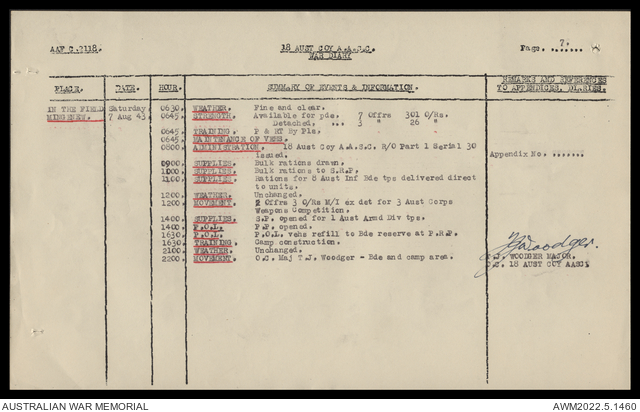 AAF C.2118.
18 AUST COY A.A.S.C.
WAR DIARY
Page. .. 7. ..
PLACE. DATE. HOUR. SUMMARY OF EVENTS & INFORMATION. REMARKS AND REFERENCES TO APPENDICES, DIARIES.
IN THE FIELD Saturday 0630. WEATHER. Fine and clear.
MINGENEW. 7 Aug 43. 0645. STRENGTH. Available for pde. 7 Offrs 301 O/Rs.
Detached. .. 3 " 26 "
0645. TRAINING. P & RT By Pls.
0645. MAINTENANCE OF VEHS.
0800. ADMINISTRATION. 18 Aust Coy A.A.S.C. R/O Part 1 Serial 30
issued. Appendix No. .......
0900. SUPPLIES. Bulk rations drawn.
1000. SUPPLIES. Bulk rations to S.R.P.
1100. SUPPLIES. Rations for 8 Aust Inf Bde tps delivered direct
to units.
1200. WEATHER. Unchanged.
1200. MOVEMENT. 2 Offrs 3 O/Rs M/I ex det for 3 Aust Corps
Weapons Competition.
1400. SUPPLIES. S.P. opened for 1 Aust Armd Div tps.
1400. P.O.L. P.P. opened.
1630. P.O.L. P.O.L. vehs refill to Bde reserve at P.R.P.
1630. TRAINING. Camp construction.
2100. WEATHER. Unchanged.
2200. MOVEMENT. O.C. Maj T.J. Woodger - Bde and camp area.
TJWoodger.
T.J. WOODGER MAJOR.
O.C. 18 AUST COY AASC.
AUSTRALIAN WAR MEMORIAL
AWM2022.5.1460